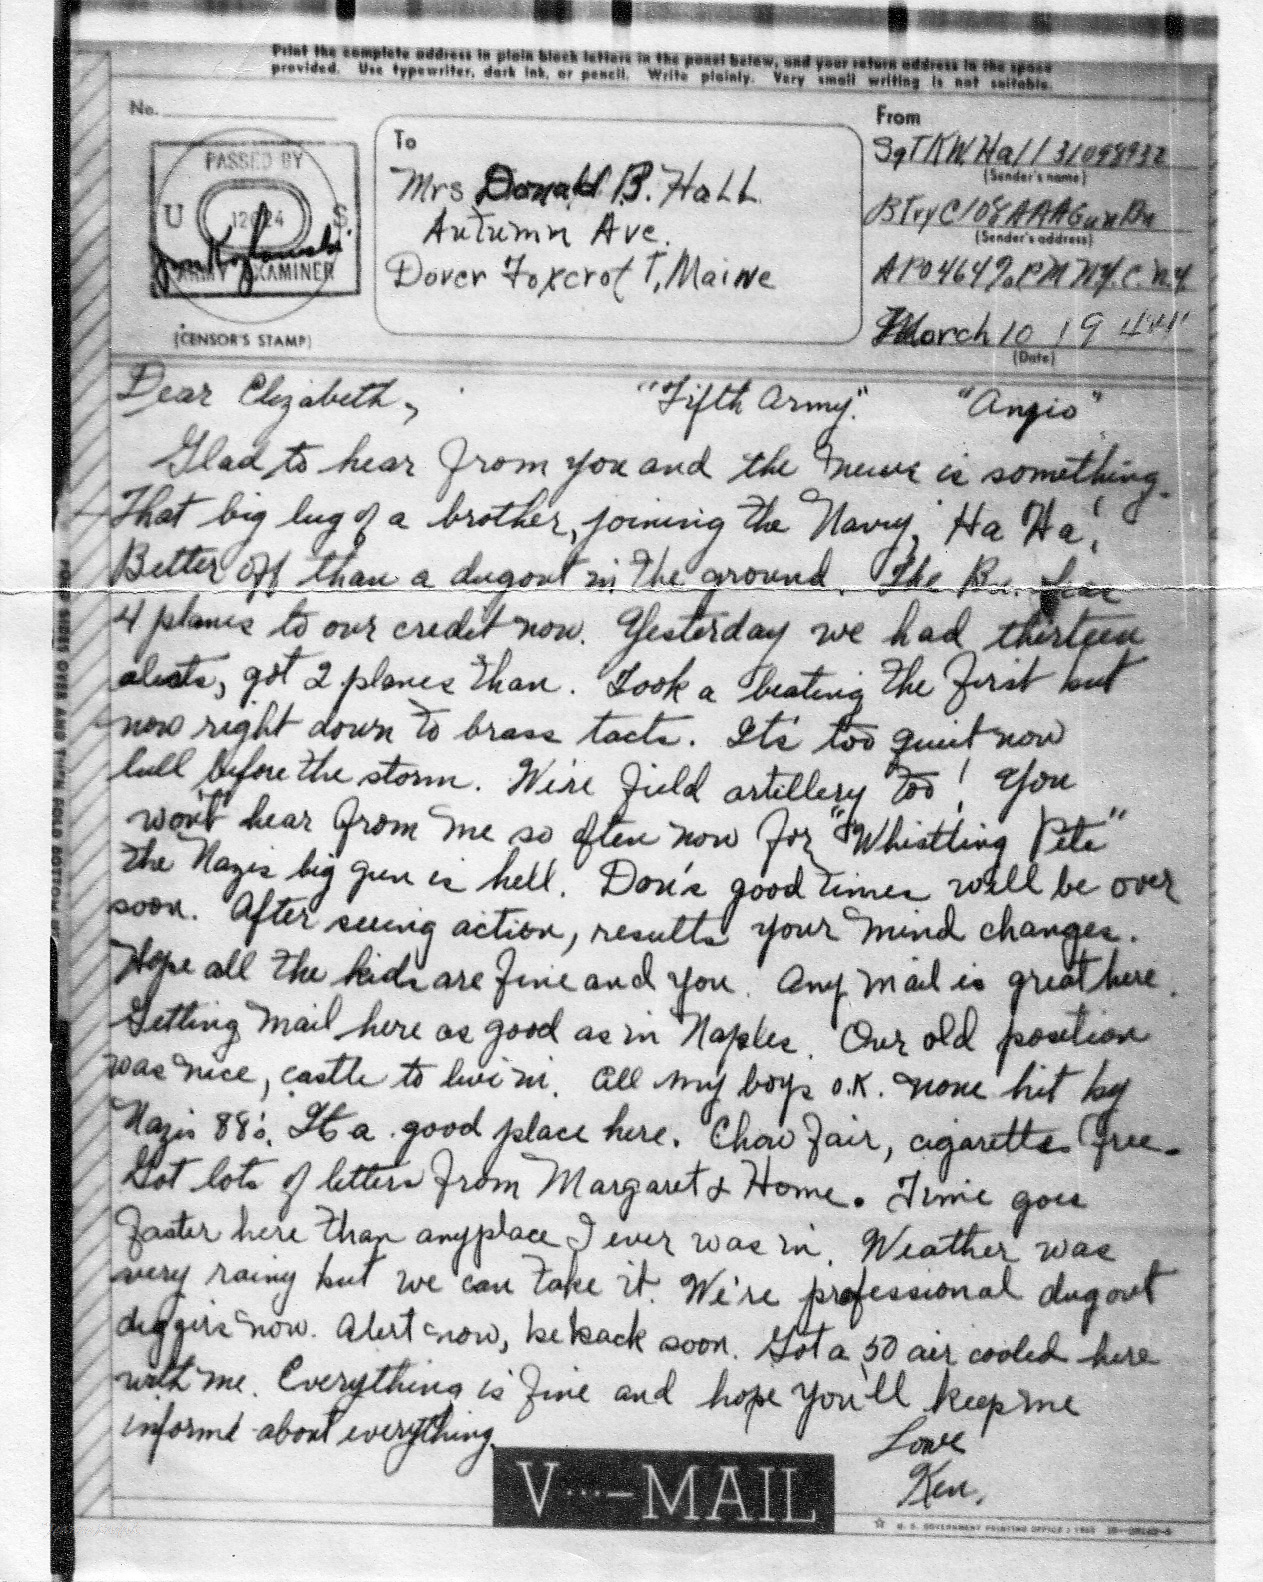 Print the complete address in plain block letters in the panel below, and your return address in the space
provided. Use typewriter, dark ink, or pencil. Write plainly. Very small writing is not suitable.
No.
PASSED BY
U S
12024
ARMY EXAMINER
(CENSOR'S STAMP)
To
Mrs Donald B. Hall
Autumn Ave.
Dover Foxcroft, Maine
From
SgT KW Hall 31098932
(Sender's name)
BTry C 108 AAA Gun Bn
(Sender's address)
APO 464 % PM N.Y.C. N.Y
March 10 1944
(Date)
Dear Elizabeth, "Fifth Army". "Anzio"
Glad to hear from you and the news is something.
That big lug of a brother, joining the Navy, Ha Ha!
Better off than a dugout in the ground. The Bn. has
4 planes to our credit now. Yesterday we had thirteen
alerts, got 2 planes than. Took a beating the first but
now right down to brass tacts. It's too quiet now
lull before the storm. We're field artillery too! You
won't hear from me so often now for "Whistling Pete"
the Nazis big gun is hell. Don's good times will be over
soon. After seeing action, results your mind changes.
Hope all the kids are fine and you. Any mail is great here.
Getting mail here as good as in Naples. Our old position
was nice, castle to live in. All my boys O.K. none hit by
Nazis 88's. It's a good place here. Chow fair, cigaretts free.
Got lots of letters from Margaret & Home. Time goes
faster here than anyplace I ever was in. Weather was
very rainy but we can take it. We're professional dugout
diggers now. Alert now, be back soon. Got a 50 air cooled here
with me. Everything is fine and hope you'll keep me
informd about everything.
Love
Ken.
V···—MAIL
U. S. GOVERNMENT PRINTING OFFICE